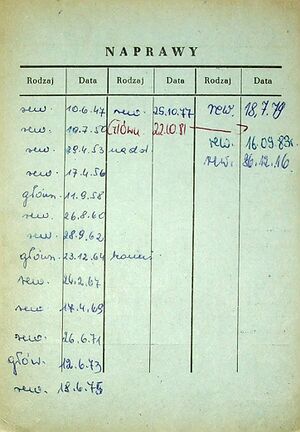 NAPRAWY
Rodzaj Data Rodzaj Data Rodzaj Data
rew. 10.6.47 rew. 25.10.77 rew. 18.7.79
rew. 10.7.50 Główn 22.10.81
rew. 16.09.83r.
rew. 29.4.53 rew. 26.12.16.
rew. 17.4.56
główn. 11.9.58
rew. 26.8.60
rew. 28.9.62
główn. 23.12.64
rew. 24.2.67
rew. 17.4.69
rew. 26.6.71
głów. 12.6.73
rew. 18.6.75